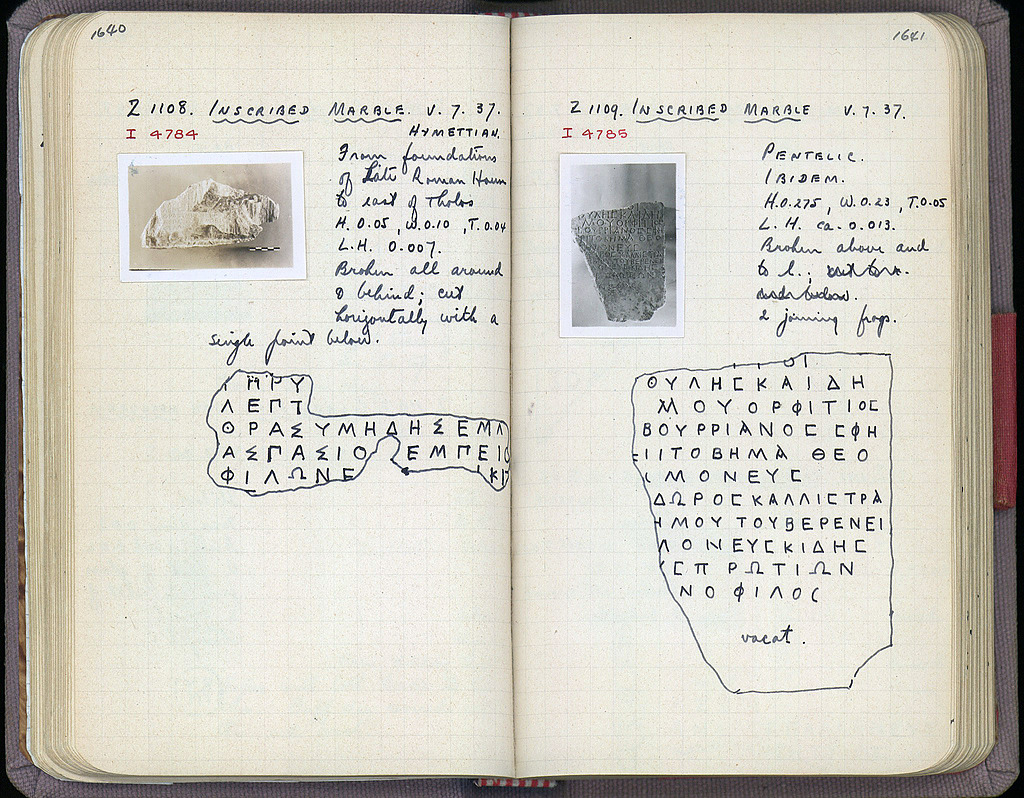 1640
Z 1108. INSCRIBED MARBLE. V. 7. 37.
I 4784
HYMETTIAN.
From foundations
of Late Roman House
to east of Tholos
H. 0.05, W. 0.10, T. 0.04
L.H. 0.007.
Broken all around
& behind; cut
horizontally with a
single point below.
ΗΡΥ
ΛΕΠΤ
ΘΡΑΣΥΜΗΔΗΣΕΜΛ
ΑΣΠΑΣΙΟ ΕΜΠΕΙΟ
ΦΙΛΩΝΕ ΙΚΙ
1641
Z 1109. INSCRIBED MARBLE V. 7. 37.
I 4785
PENTELIC.
IBIDEM.
H. 0.275, W. 0.23, T. 0.05
L.H. ca. 0.013.
Broken above and
to l.;
2 joining frags.
ΟΥΛΗϹΚΑΙΔΗ
ΜΟΥΟΡΦΙΤΙΟϹ
ΒΟΥΡΡΙΑΝΟϹ ϹΦΗ
ΙΙΤΟΒΗΜΑ ΘΕΟ
ΜΟΝΕΥϹ
ΔΩΡΟϹΚΑΛΛΙϹΤΡΑ
ΗΜΟΥ ΤΟΥΒΕΡΕΝΕΙ
ΛΟΝΕΥϹΚΙΔΗϹ
ϹΠΡΩΤΙΩΝ
ΝΟΦΙΛΟϹ
vacat.